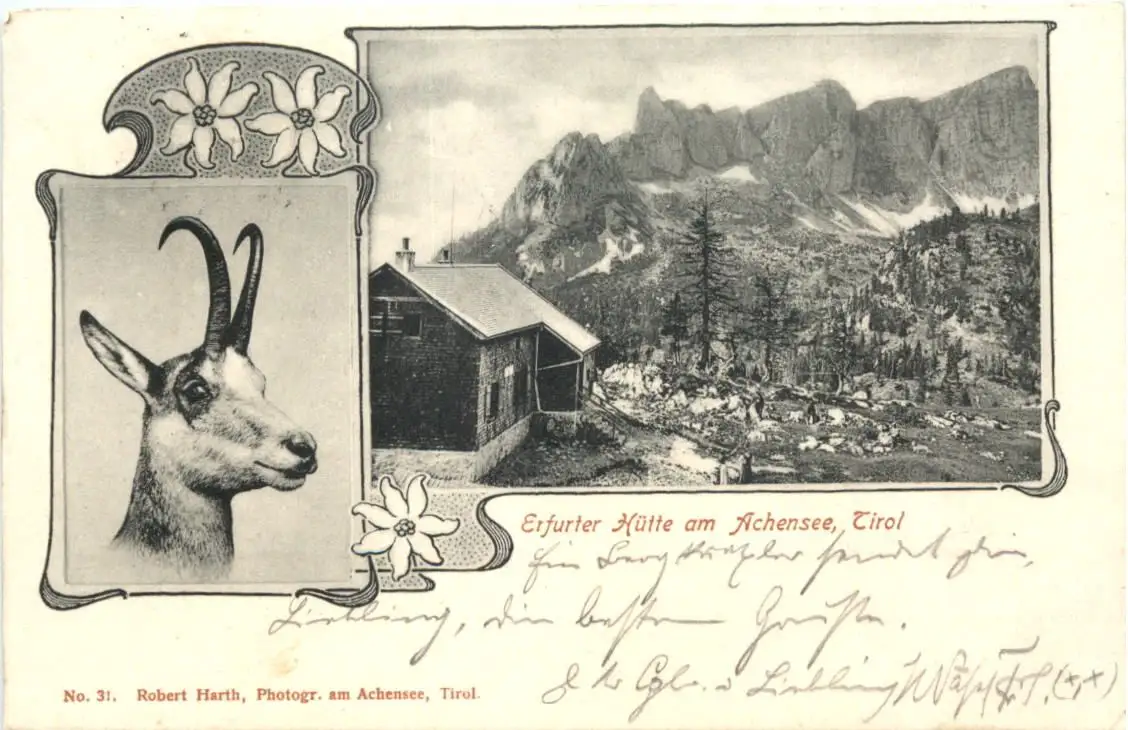 Erfurter Hütte am Achensee, Tirol
Ein Berg sendet dir,
Liebling, die besten Grüße.
Liebling
No. 31. Robert Harth, Photogr. am Achensee, Tirol.